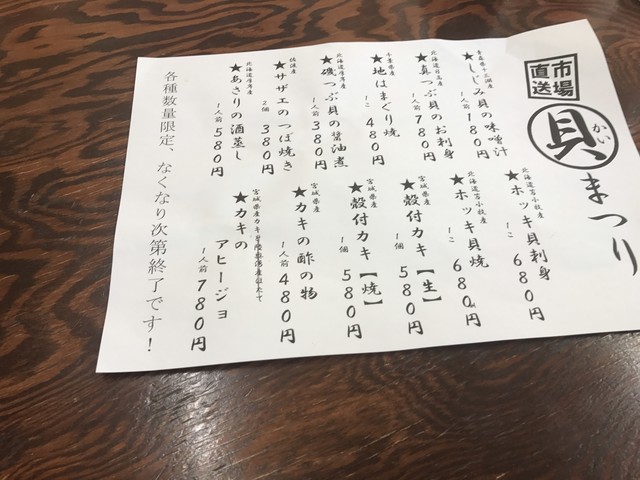 市場
直送
貝まつり
かい
青森県十三湖産
★しじみ貝の味噌汁
1人前180円
北海道日高産
★真つぶ貝のお刺身
1人前780円
千葉県産
★地はまぐり焼
1こ480円
北海道厚岸産
★磯つぶ貝の醤油煮
1人前380円
佐渡産
★サザエのつぼ焼き
2個380円
北海道厚岸産
★あさりの酒蒸し
1人前580円
北海道苫小牧産
★ホッキ貝刺身
1こ680円
北海道苫小牧産
★ホッキ貝焼
1こ680円
宮城県産
★殻付カキ【生】
1個580円
宮城県産
★殻付カキ【焼】
1個580円
宮城県産
★カキの酢の物
1人前480円
★カキの
アヒージョ
1人前780円
各種数量限定、なくなり次第終了です!